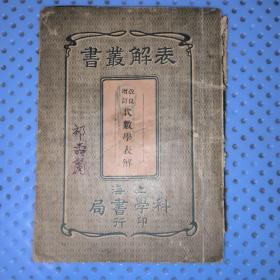 表解叢書
改良
增訂
代數學表解
上海
科學書局
印行